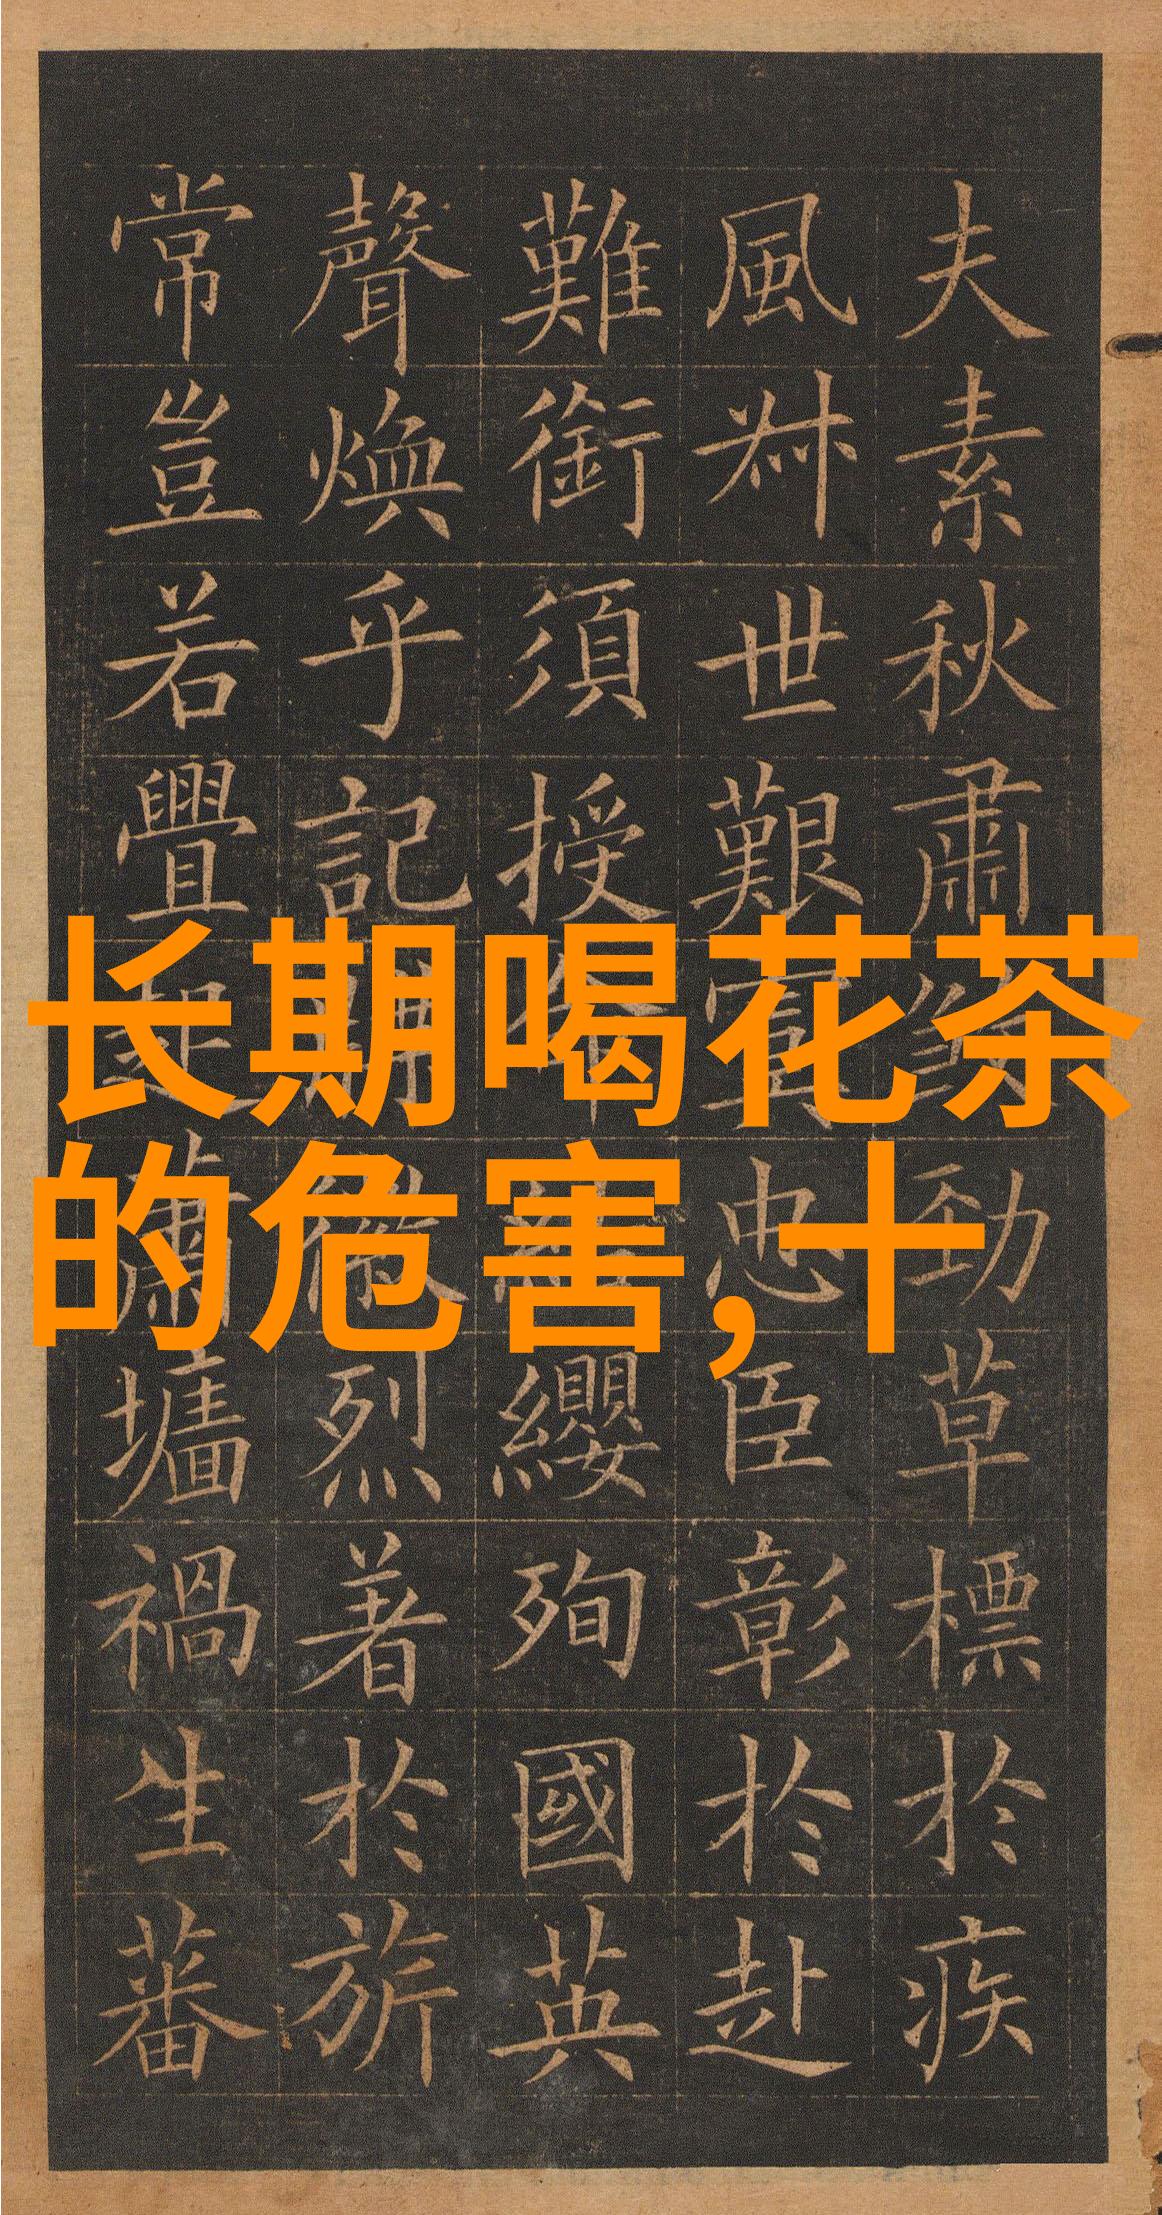 长期喝花茶
的危害,十
夫素秋肅勁草標於疾
風叔世艱忠臣彰於赴
難銜須授纓殉國英
聲煥乎記烈著於旂
常豈若舋墻禍生蕃